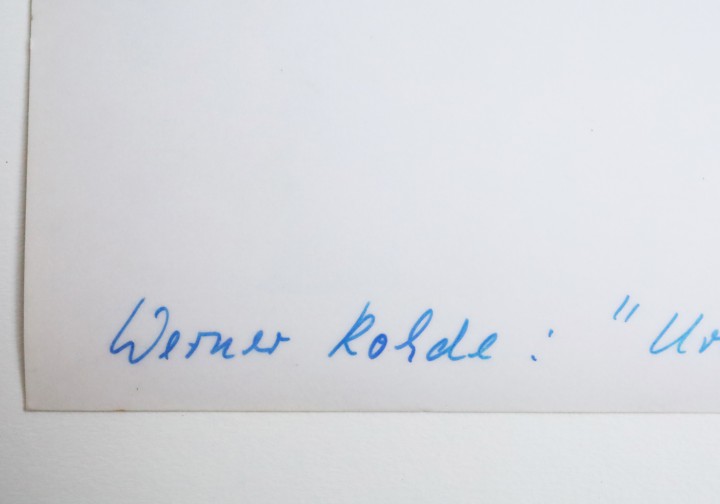 Werner Rohde : "Ur